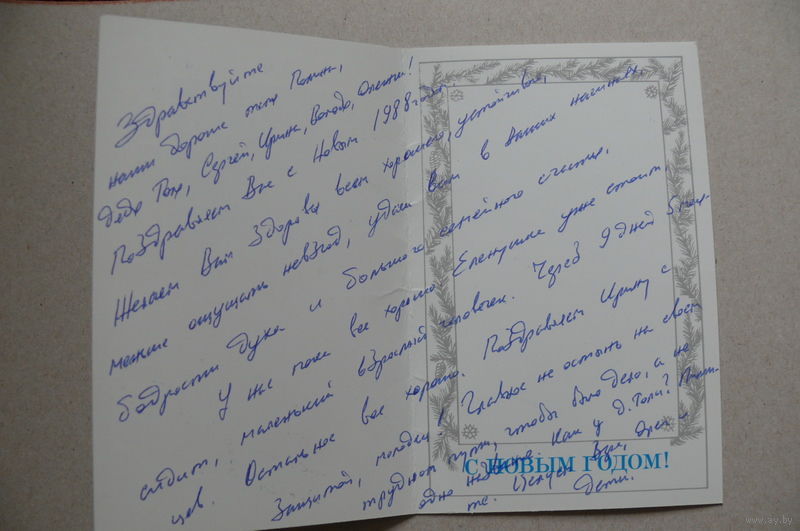 Здравствуйте
наши дорогие тетя Полина,
дядя Толя, Сергей, Ирина, Володя, Оленька!
Поздравляем Вас с Новым 1988 годом
Желаем Вам здоровья всем хорошего, устойчивого,
меньше ощущать невзгод, удачи всем в Ваших начинах,
бодрости духа и большого семейного счастья.
У нас пока все хорошо. Еленушка уже стоит,
сидит, маленький взрослый человечек. Через 9 дней 8 меся-
цев. Остальное все хорошо. Поздравляем Ирину с
Защитой, молодец! Главное не остыть на своем
трудном пути, чтобы было дело, а не
одно Как у д. Толи? Пиши-
те. Целуем Вас, 
Дети.
С НОВЫМ ГОДОМ!
www.ay.by